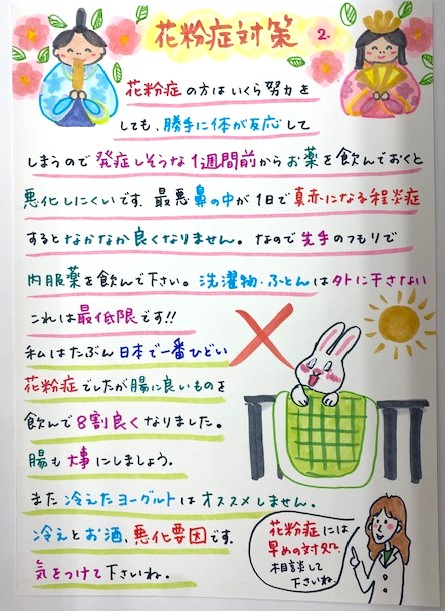 花粉症対策 2.
花粉症の方はいくら努力を
しても、勝手に体が反応して
しまうので発症しそうな1週間前からお薬を飲んでおくと
悪化しにくいです。最悪鼻の中が1日で真赤になる程炎症
するとなかなか良くなりません。なので先手のつもりで
内服薬を飲んで下さい。洗濯物・ふとんは外に干さない
これは最低限です!!
私はたぶん日本で一番ひどい
花粉症でしたが腸に良いものを
飲んで8割良くなりました。
腸も大事にしましょう。
また冷えたヨーグルトはオススメしません。
冷えとお酒、悪化要因です。
気をつけて下さいね。
花粉症には
早めの対処。
相談して
下さいね。